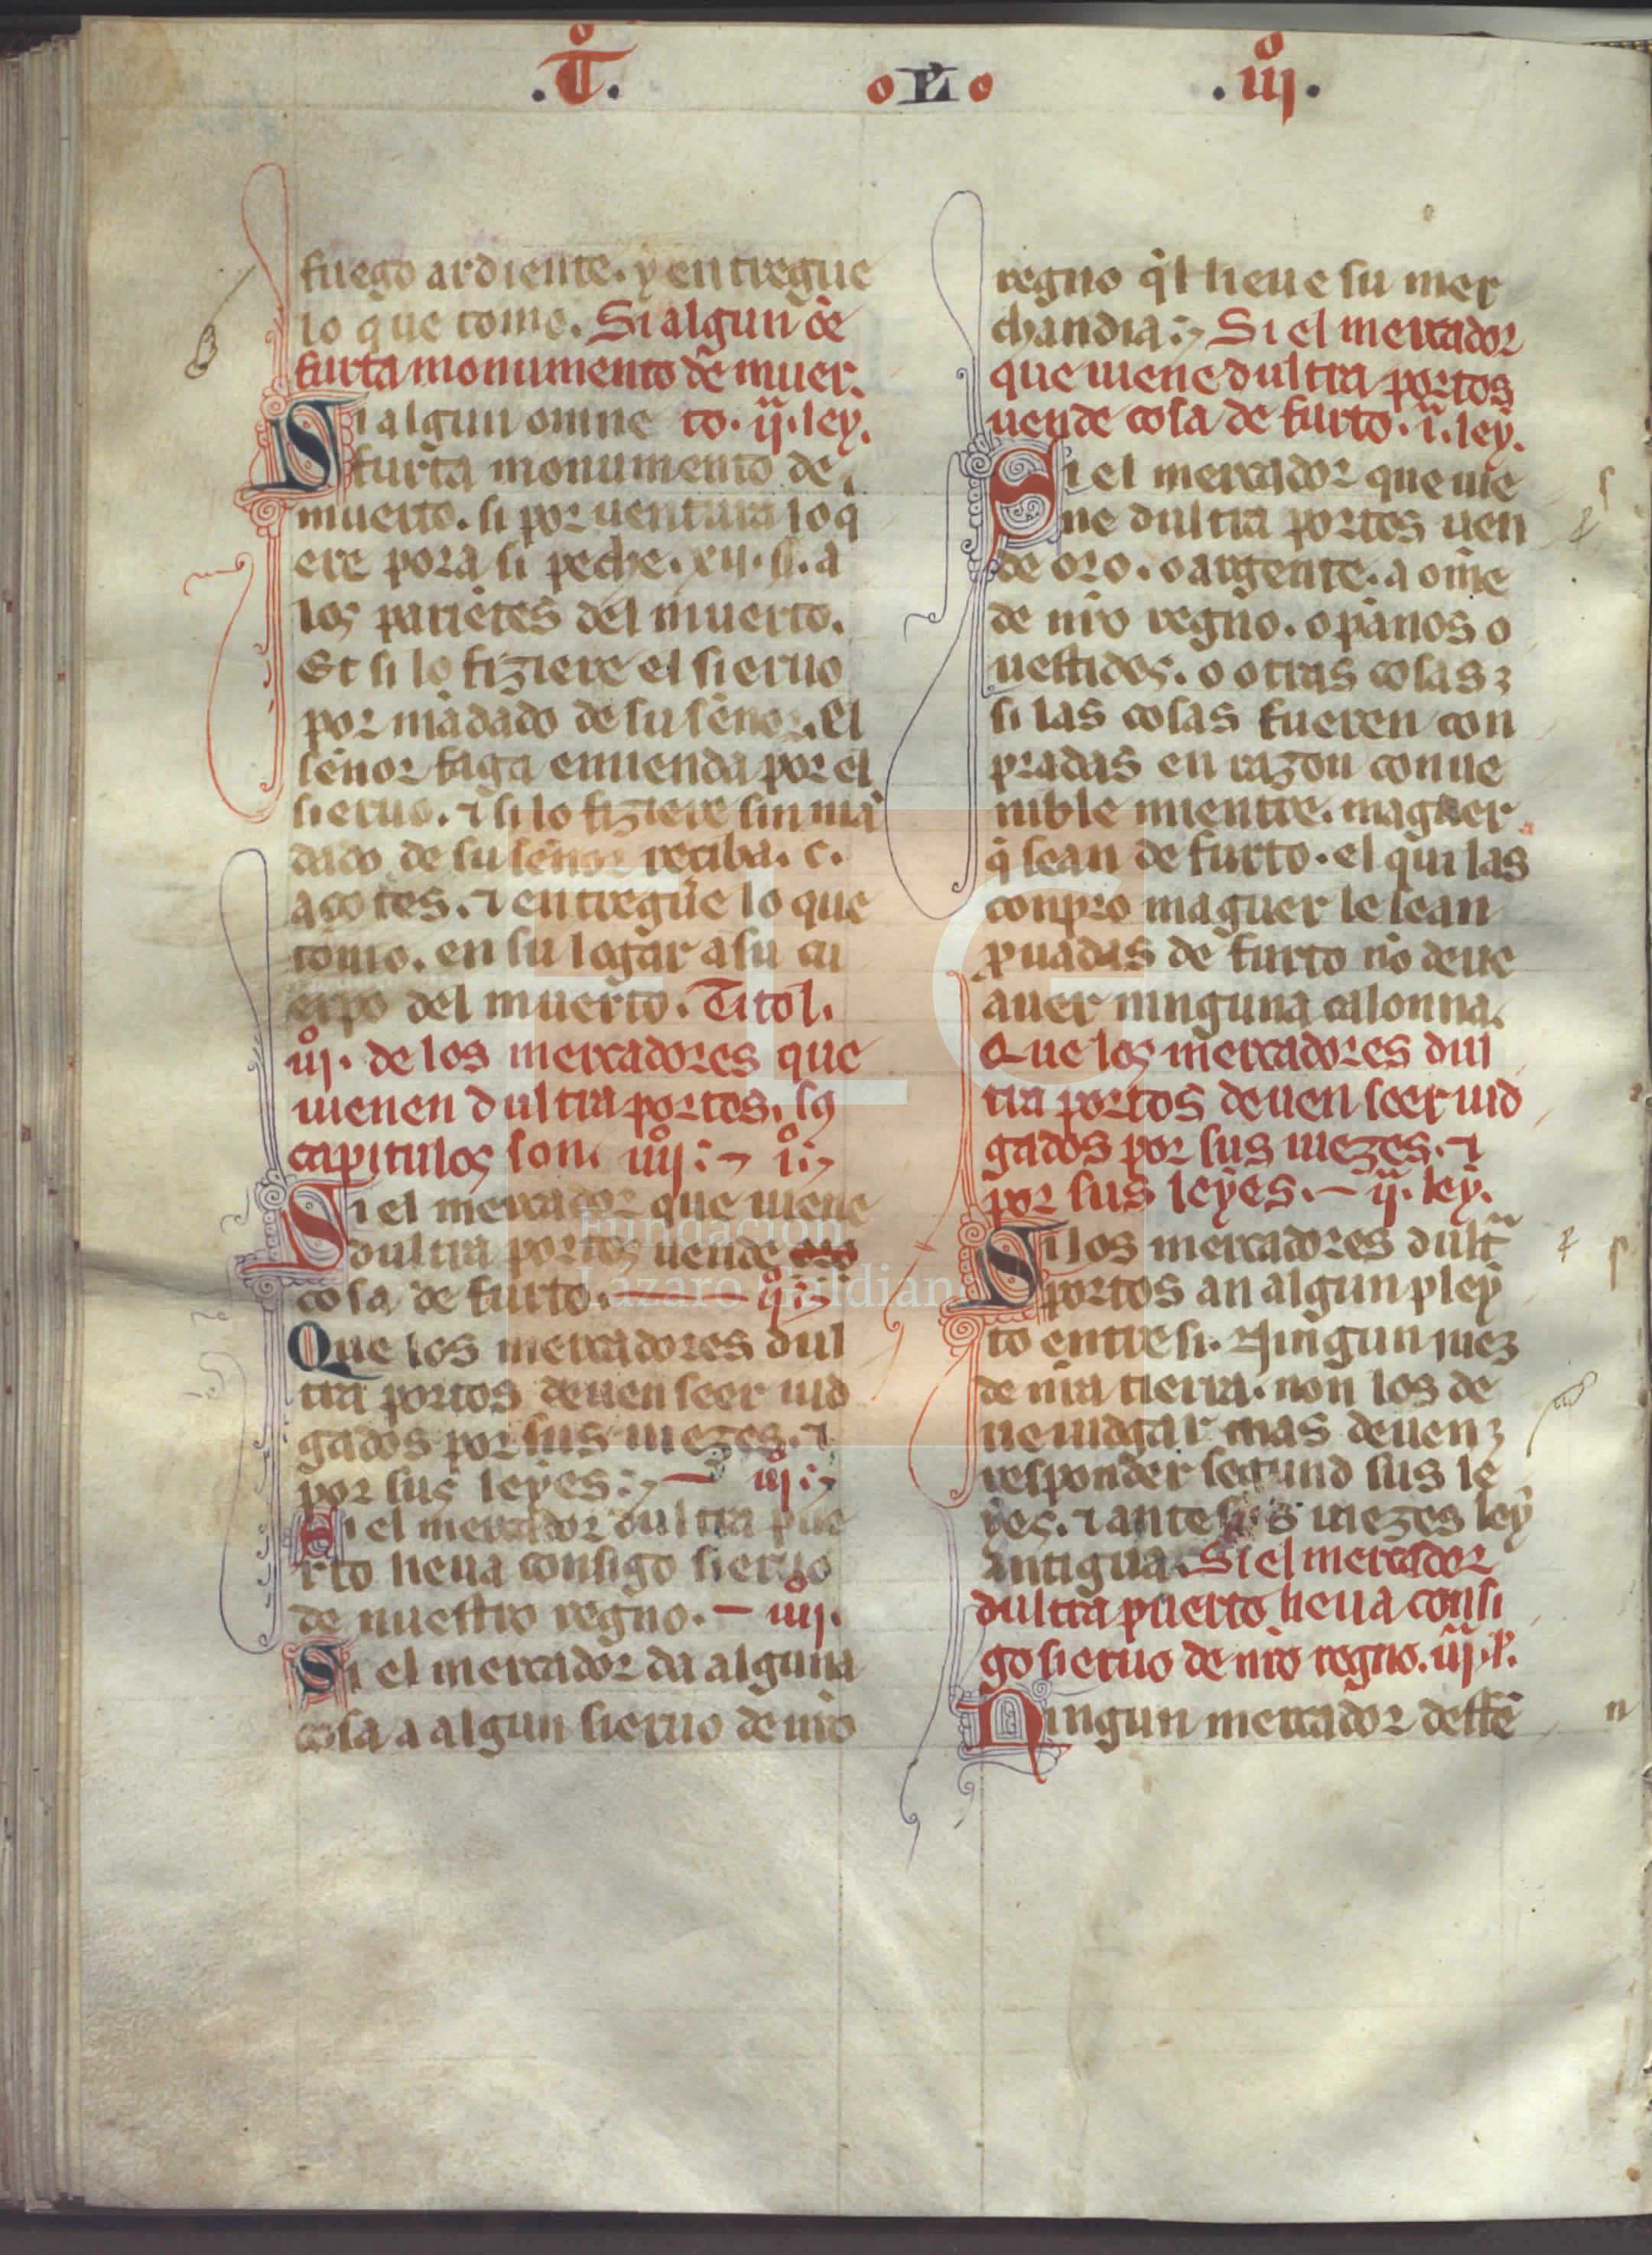 .T͛o. o L o .iijo.
fuego ardiente. y entregue
lo que tome. Si algun ōe
furta monumento de muer-
Si algun omne to. ij. ley.
furta monumento de
muerto. si por uentura lo q̄
ere pora si peche. xij. ss. a
los pariētes del muerto.
Et si lo fiziere el sieruo
por mādado de su señor. El
señor faga emienda por el
sieruo. ⁊ si lo fiziere sin mā
dado de su señor reciba. c.
açotes. ⁊ entregue lo que
tomo. en su logar a su cu
erpo del muerto. Titol.
iij. de los mercadores que
uienen dultra portos. sꝯ
capitulos son. iiij. i.
Si el mercador que uiene
dultra portos uende
cosa de furto. ij.
Que los mercadores dul
tra portos deuen seer iud
gados por sus iuezes. ⁊
por sus leyes. iij.
Si el mercador dultra pue
rto lieua consigo sieruo
de nuestro regno. iiij.
Si el mercador da alguna
cosa a algun sieruo de nr̄o
regno q̄l lieue su mer
chandia. Si el mercador
que uiene dultra portos
uende cosa de furto. i. ley.
Si el mercador que uie
ne dultra portos uen
de oro. o argente. a om̄e
de nr̄o regno. o panos o
uestidos. o otras cosas ⁊
si las cosas fueren con
pradas en razon conue
nible mientre. maguer
q̄ sean de furto. el qui las
conpro maguer le sean
prouadas de furto nō deue
auer ninguna calonna.
Que los mercadores dul
tra portos deuen seer iud
gados por sus iuezes. ⁊
por sus leyes. ij. ley.
Si los mercadores dult̄
portos an algun pley
to entre si. Ningun iuez
de nr̄a tierra. non los de
ue iudgar mas deuen ⁊
responder segund sus le
yes. ⁊ ante sus iuezes ley
antigua. Si el mercador
dultra puerto lieua consi
go sieruo de nr̄o regno. iij. l.
Ningun mercador destē